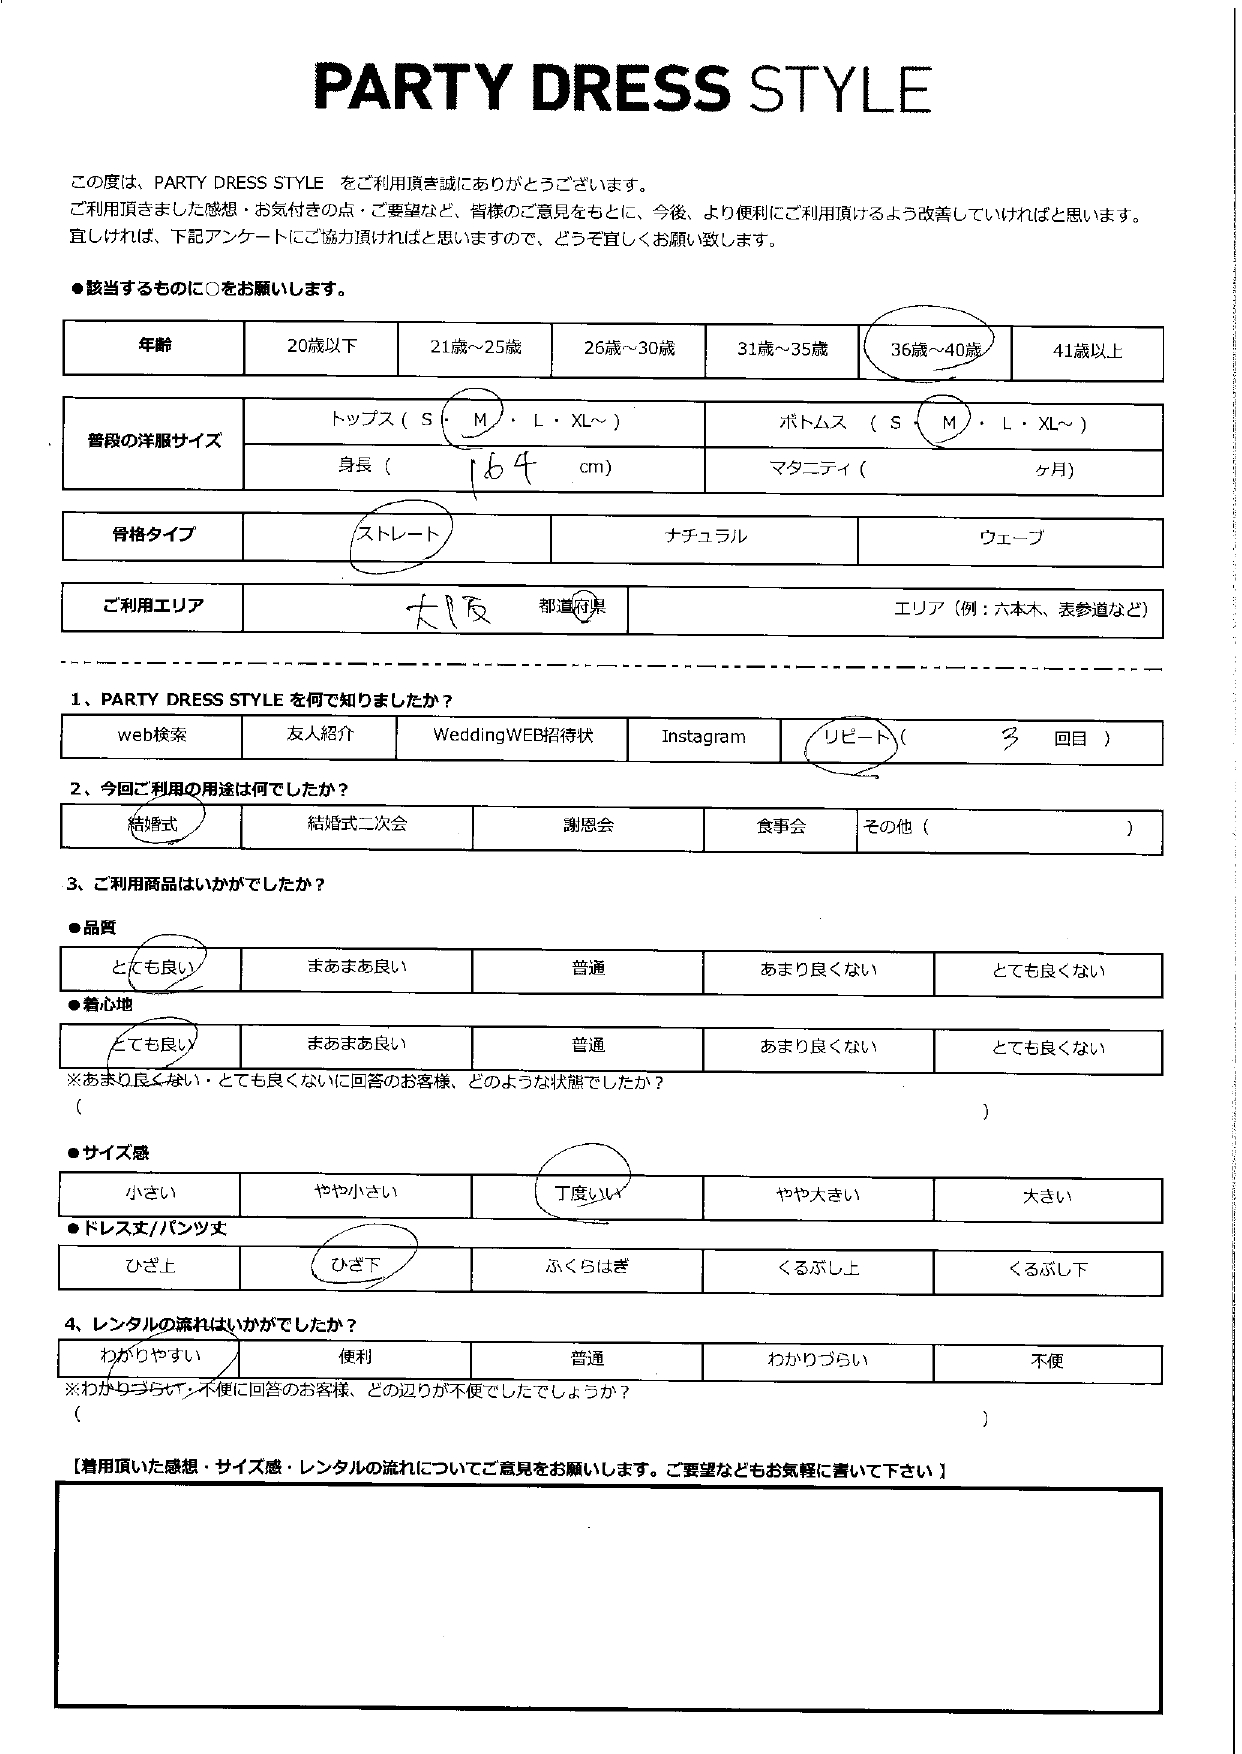 PARTY DRESS STYLE
この度は、PARTY DRESS STYLE をご利用頂き誠にありがとうございます。
ご利用頂きました感想・お気付きの点・ご要望など、皆様のご意見をもとに、今後、より便利にご利用頂けるよう改善していければと思います。
宜しければ、下記アンケートにご協力頂ければと思いますので、どうぞ宜しくお願い致します。
●該当するものに○をお願いします。
年齢 20歳以下 21歳～25歳 26歳～30歳 31歳～35歳 36歳～40歳 41歳以上
普段の洋服サイズ
トップス ( S ・ M ・ L ・ XL～ ) ボトムス ( S ・ M ・ L ・ XL～ )
身長 ( 164 cm) マタニティ ( ヶ月)
骨格タイプ ストレート ナチュラル ウェーブ
ご利用エリア 大阪 都道府県 エリア（例：六本木、表参道など）
1、PARTY DRESS STYLE を何で知りましたか？
web検索 友人紹介 WeddingWEB招待状 Instagram リピート ( 3 回目 )
2、今回ご利用の用途は何でしたか？
結婚式 結婚式二次会 謝恩会 食事会 その他 ( )
3、ご利用商品はいかがでしたか？
●品質
とても良い まあまあ良い 普通 あまり良くない とても良くない
●着心地
とても良い まあまあ良い 普通 あまり良くない とても良くない
※あまり良くない・とても良くないに回答のお客様、どのような状態でしたか？
( )
●サイズ感
小さい やや小さい 丁度いい やや大きい 大きい
●ドレス丈/パンツ丈
ひざ上 ひざ下 ふくらはぎ くるぶし上 くるぶし下
4、レンタルの流れはいかがでしたか？
わかりやすい 便利 普通 わかりづらい 不便
※わかりづらい・不便に回答のお客様、どの辺りが不便でしたでしょうか？
( )
【着用頂いた感想・サイズ感・レンタルの流れについてご意見をお願いします。ご要望などもお気軽に書いて下さい】